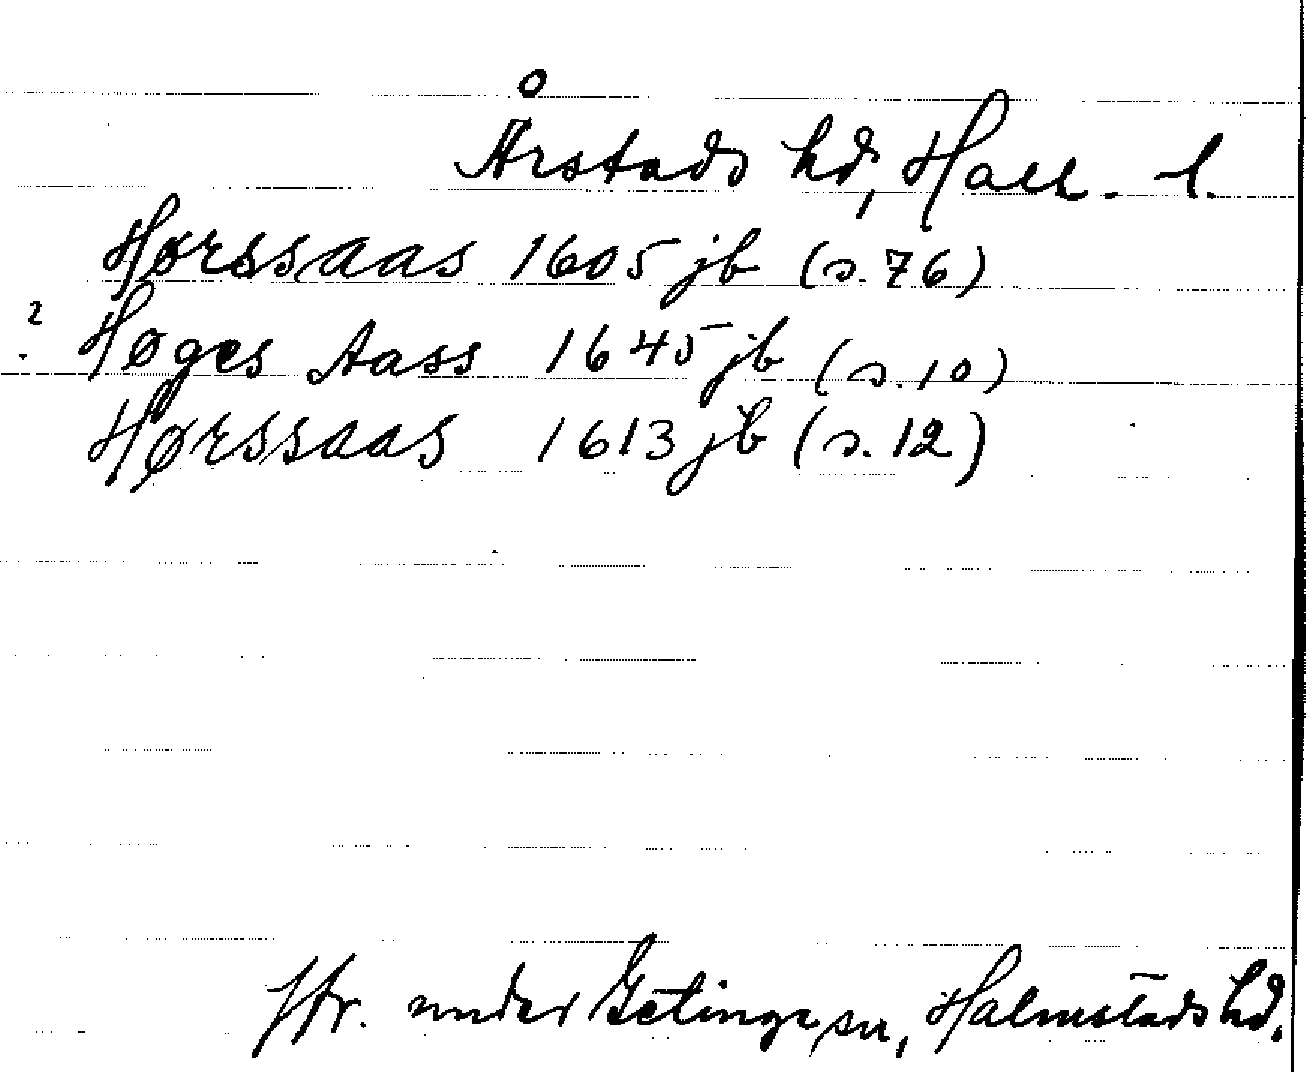 Årstads hd, Hall. l.
Hørssaas 1605 jb (s. 76)
? Høges Aass 1645 jb (s. 10)
Hørssaas 1613 jb (s. 12)
Jfr. under Getinge sn, Halmstads hd.